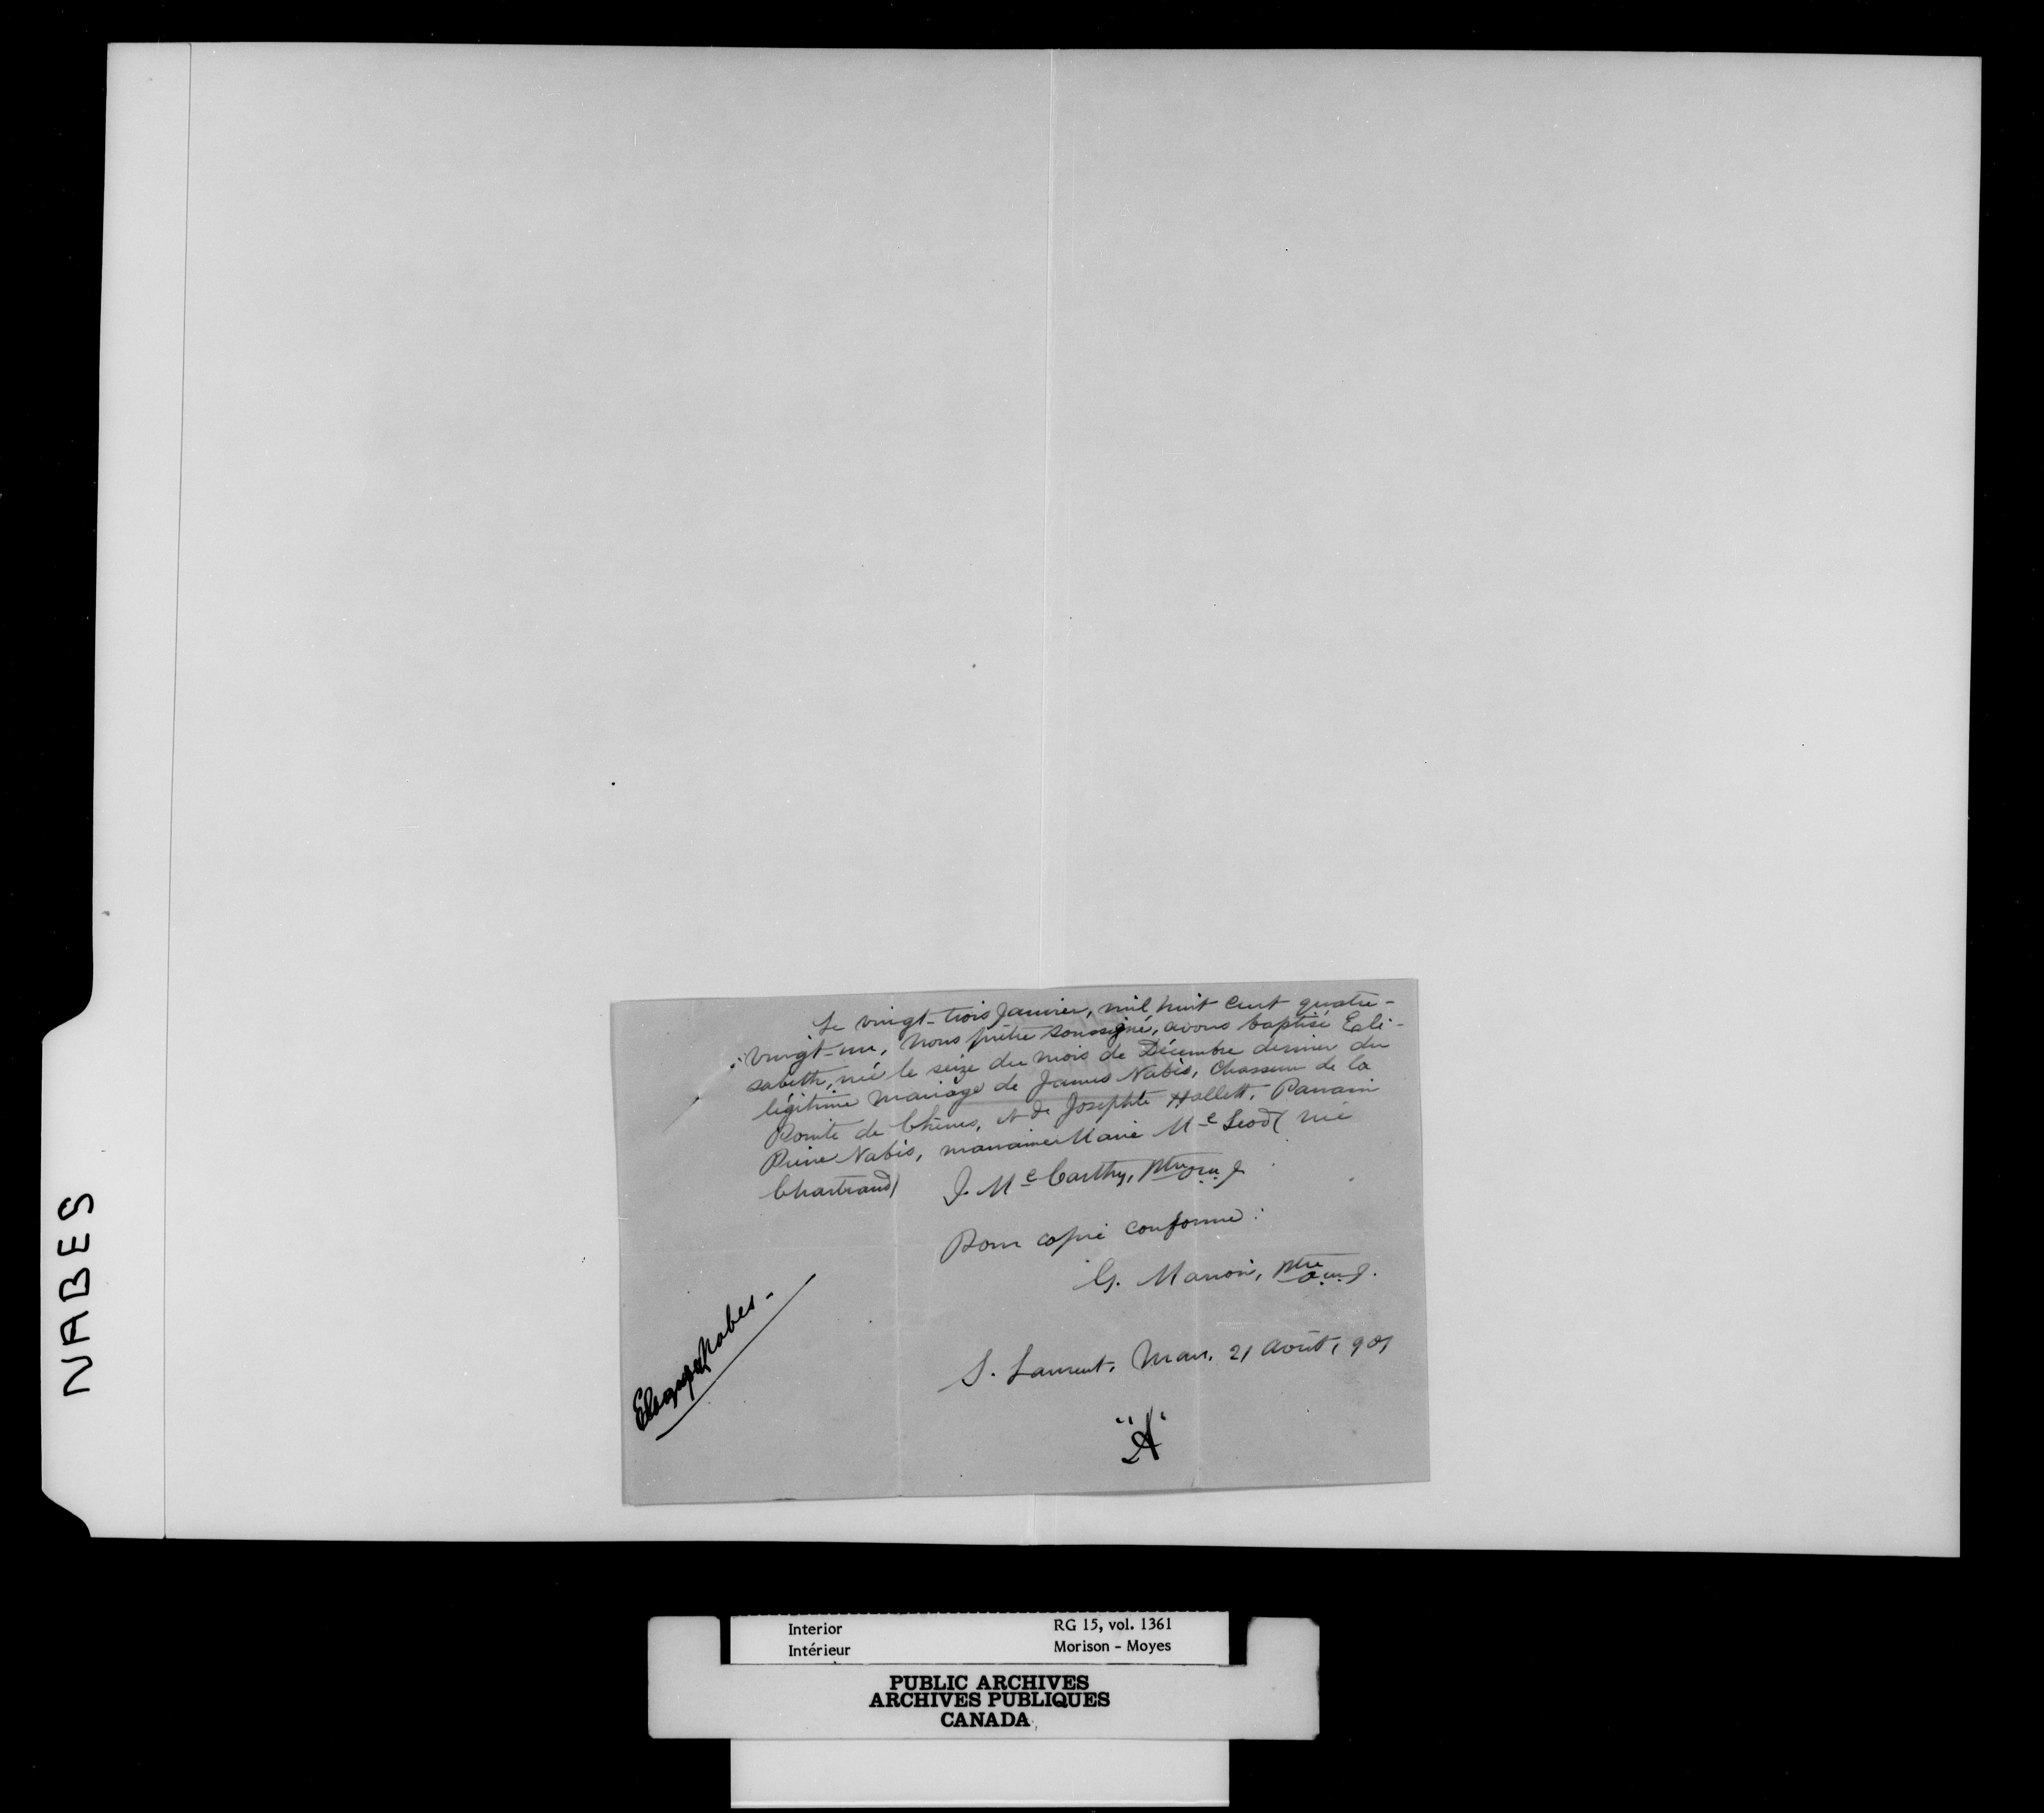 Le vingt-trois Janvier, mil huit cent quatre-
vingt-un, Nous prêtre soussigné, avons baptisé Eli-
sabeth, née le seize du mois de Décembre dernier du
légitime mariage de James Nabès, Chasseur de la
Pointe de Chênes, et de Josephte Hallett. Parrain
Pierre Nabès, marraine Marie Mc Leod (née
Chartrand)
J. Mc Carthy, Ptre o.m.j
Pour copie conforme:
G. Marion, Ptre o.m.j.
S. Laurent, Man. 21 Août, 901
"A"
Nabes -
NABES
Interior
Intérieur
RG 15, vol. 1361
Morison - Moyes
PUBLIC ARCHIVES
ARCHIVES PUBLIQUES
CANADA